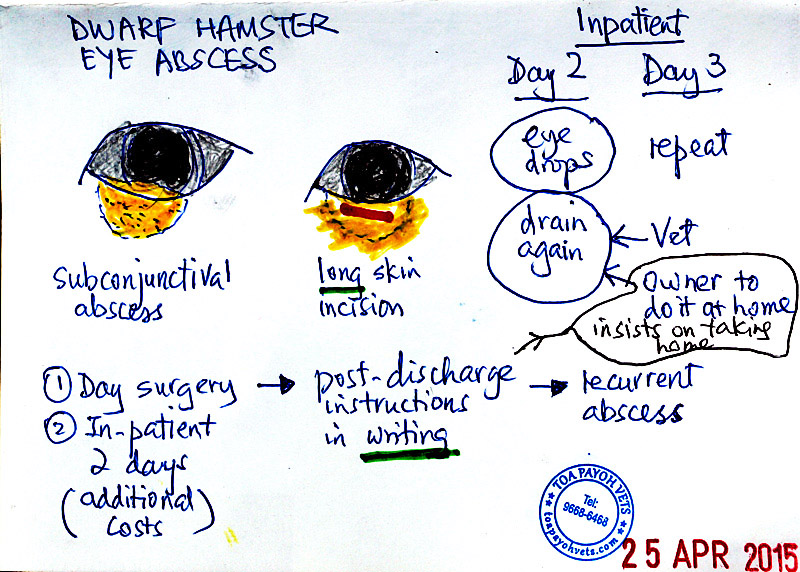 DWARF HAMSTER
EYE ABSCESS
subconjunctival
abscess
long skin
incision
Inpatient
Day 2 Day 3
eye
drops
repeat
drain
again
Vet
Owner to
do it at home
insists on taking
home
① Day surgery
② In-patient
2 days
(additional
costs)
post-discharge
instructions
in writing
recurrent
abscess
TOA PAYOH VETS
Tel:
9668-6468
toapayohvets.com
25 APR 2015